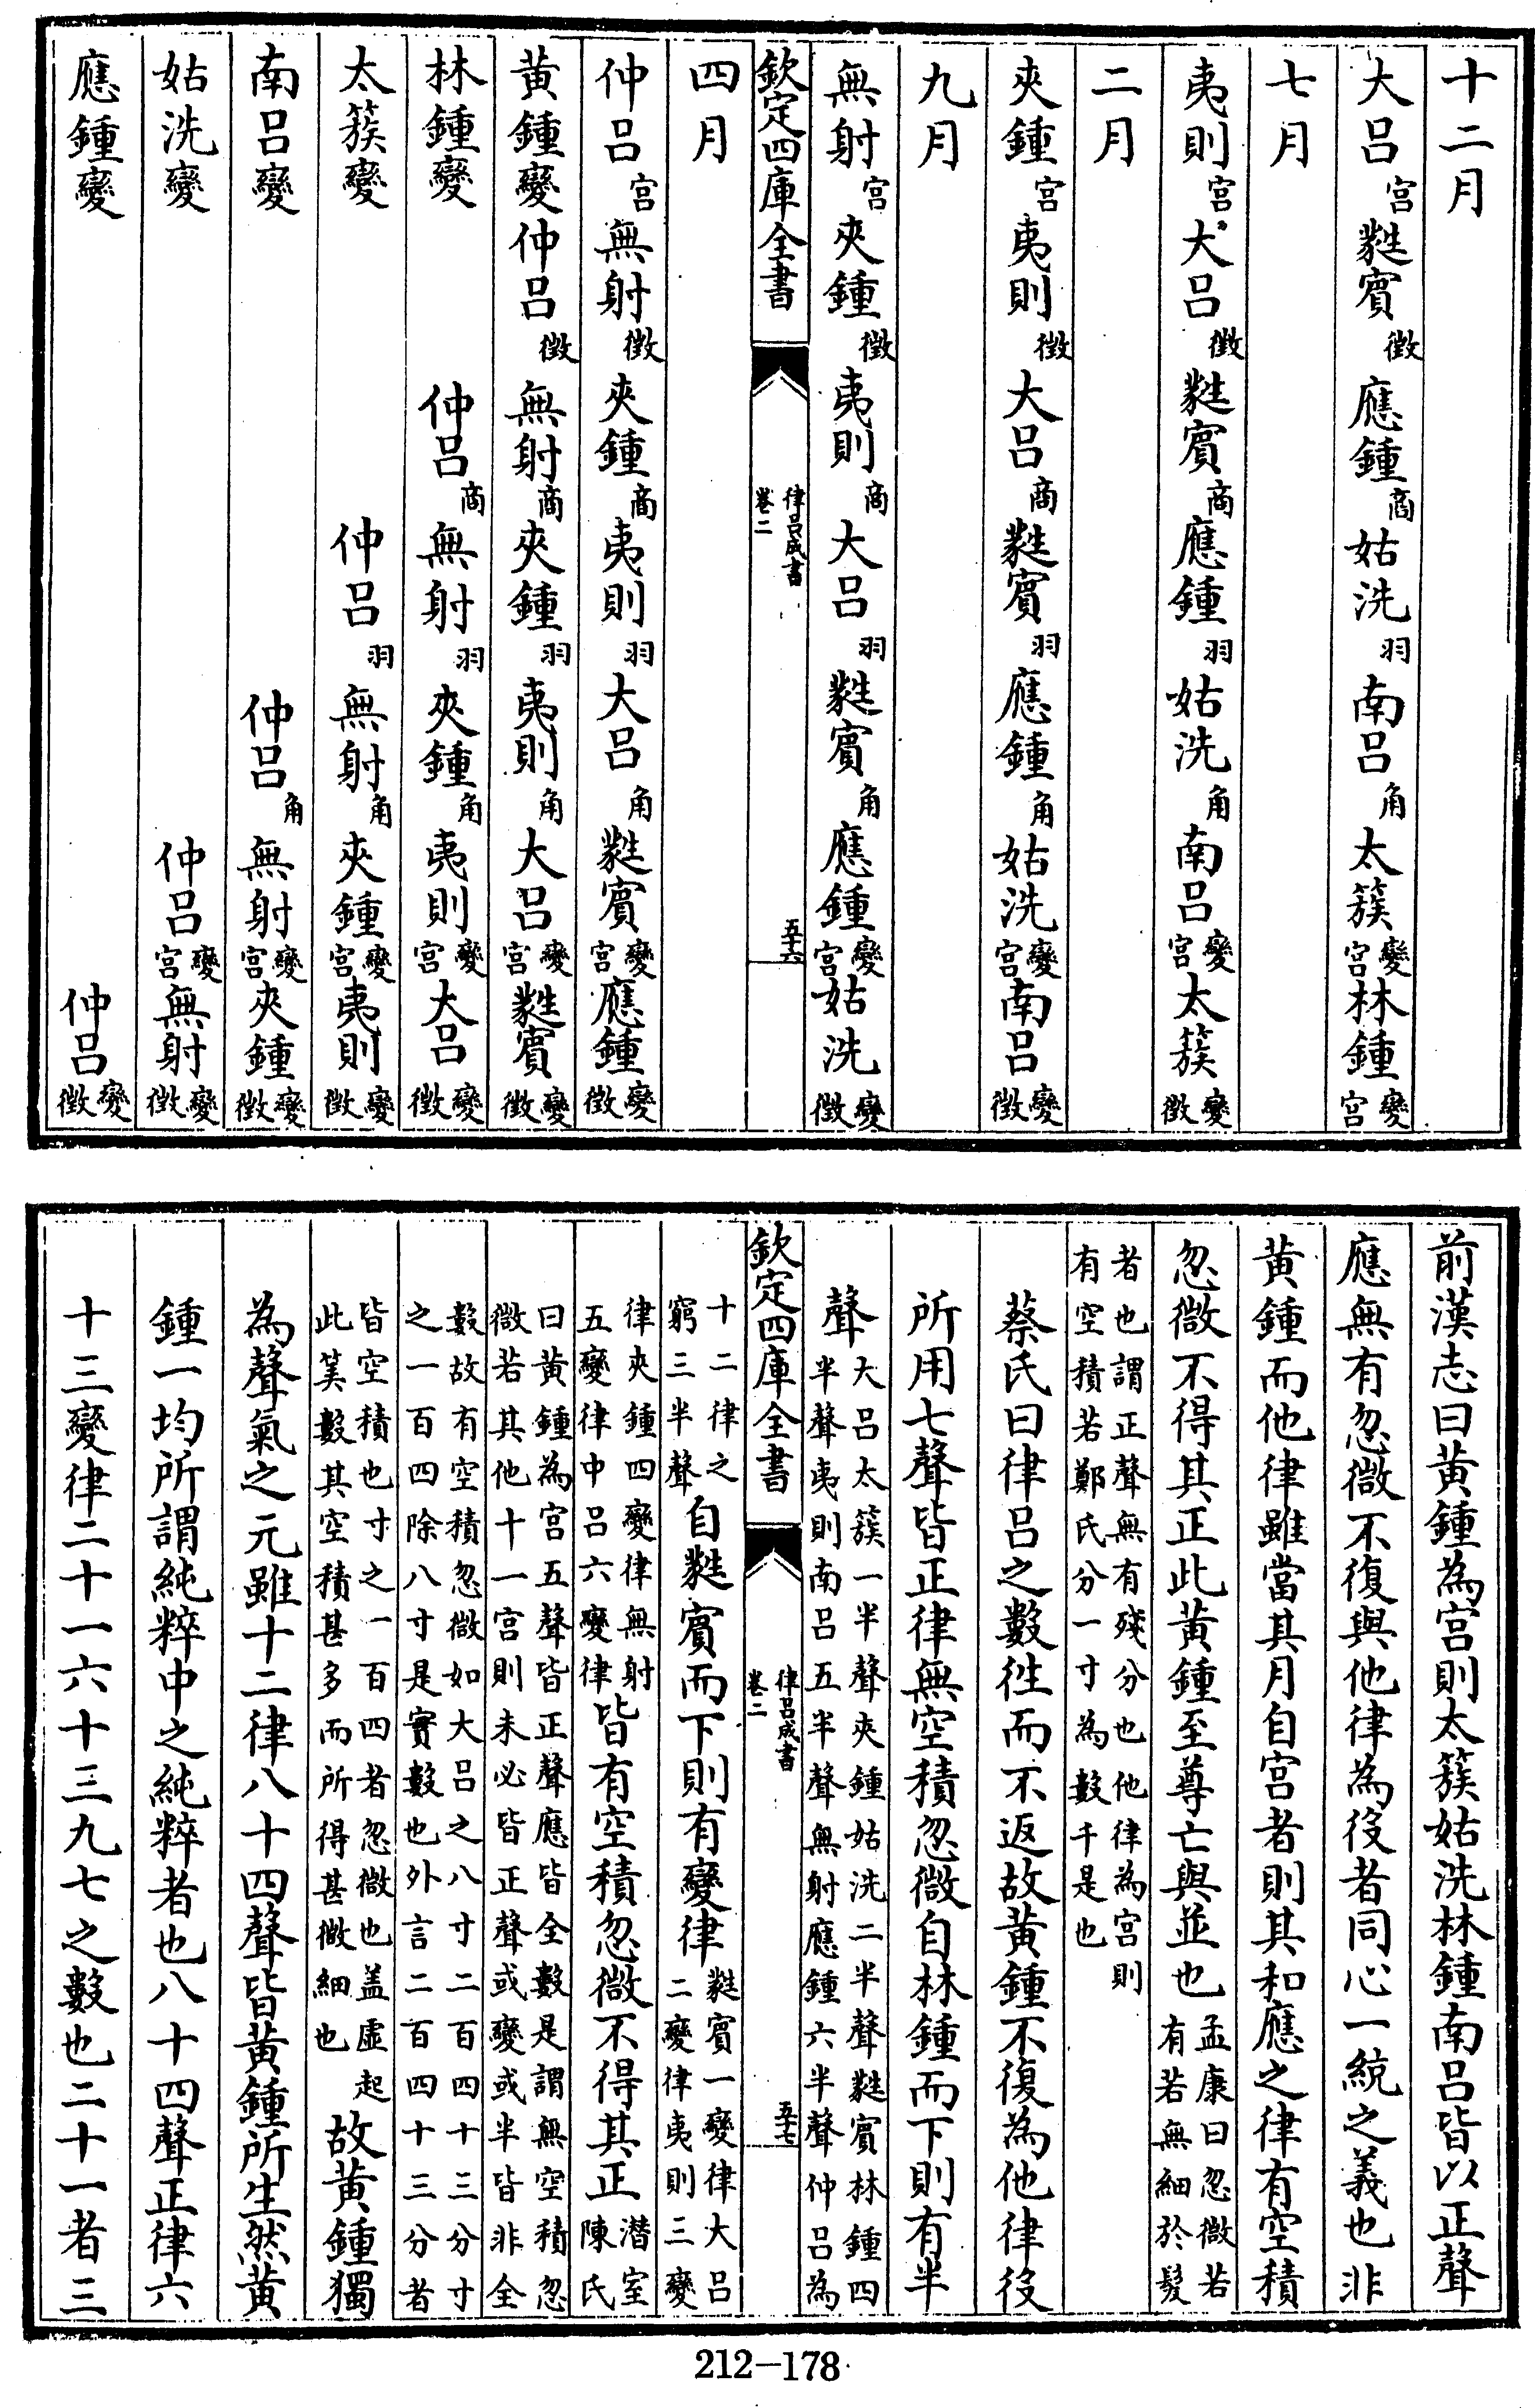 十二月
大呂宮蕤賓徵應鍾商姑洗羽南呂角太簇變宮林鍾變宮
七月
夷則宮大呂徵蕤賓商應鍾羽姑洗角南呂變宮太簇變徵
二月
夾鍾宮夷則徵大呂商蕤賓羽應鍾角姑洗變宮南呂變徵
九月
無射宮夾鍾徵夷則商大呂羽蕤賓角應鍾變宮姑洗變徵
欽定四庫全書 律呂成書 卷二 五十六
四月
仲呂宮無射徵夾鍾商夷則羽大呂角蕤賓變宮應鍾變徵
黃鍾變仲呂徵無射商夾鍾羽夷則角大呂變宮蕤賓變徵
林鍾變 仲呂商無射羽夾鍾角夷則變宮大呂變徵
太簇變 仲呂羽無射角夾鍾變宮夷則變徵
南呂變 仲呂角無射變宮夾鍾變徵
姑洗變 仲呂變宮無射變徵
應鍾變 仲呂變徵
前漢志曰黃鍾為宮則太簇姑洗林鍾南呂皆以正聲
應無有忽微不復與他律為役者同心一統之義也非
黃鍾而他律雖當其月自宮者則其和應之律有空積
忽微不得其正此黃鍾至尊亡與並也孟康曰忽微若有若無細於髮
者也謂正聲無有殘分也他律為宮則有空積若鄭氏分一寸為數千是也
蔡氏曰律呂之數往而不返故黃鍾不復為他律役
所用七聲皆正律無空積忽微自林鍾而下則有半
聲大呂太簇一半聲夾鍾姑洗二半聲蕤賓林鍾四半聲夷則南呂五半聲無射應鍾六半聲仲呂為
欽定四庫全書 律呂成書 卷二 五十七
十二律之窮三半聲自蕤賓而下則有變律蕤賓一變律大呂二變律夷則三變
律夾鍾四變律無射五變律中呂六變律皆有空積忽微不得其正潛室陳氏
曰黃鍾為宮五聲皆正聲應皆全數是謂無空積忽微若其他十一宮則未必皆正聲或變或半皆非全
數故有空積忽微如大呂之八寸二百四十三分寸之一百四除八寸是實數也外言二百四十三分者
皆空積也寸之一百四者忽微也盖虛起此筭數其空積甚多而所得甚微細也故黃鍾獨
為聲氣之元雖十二律八十四聲皆黃鍾所生然黃
鍾一均所謂純粹中之純粹者也八十四聲正律六
十三變律二十一六十三九七之數也二十一者三
212—178